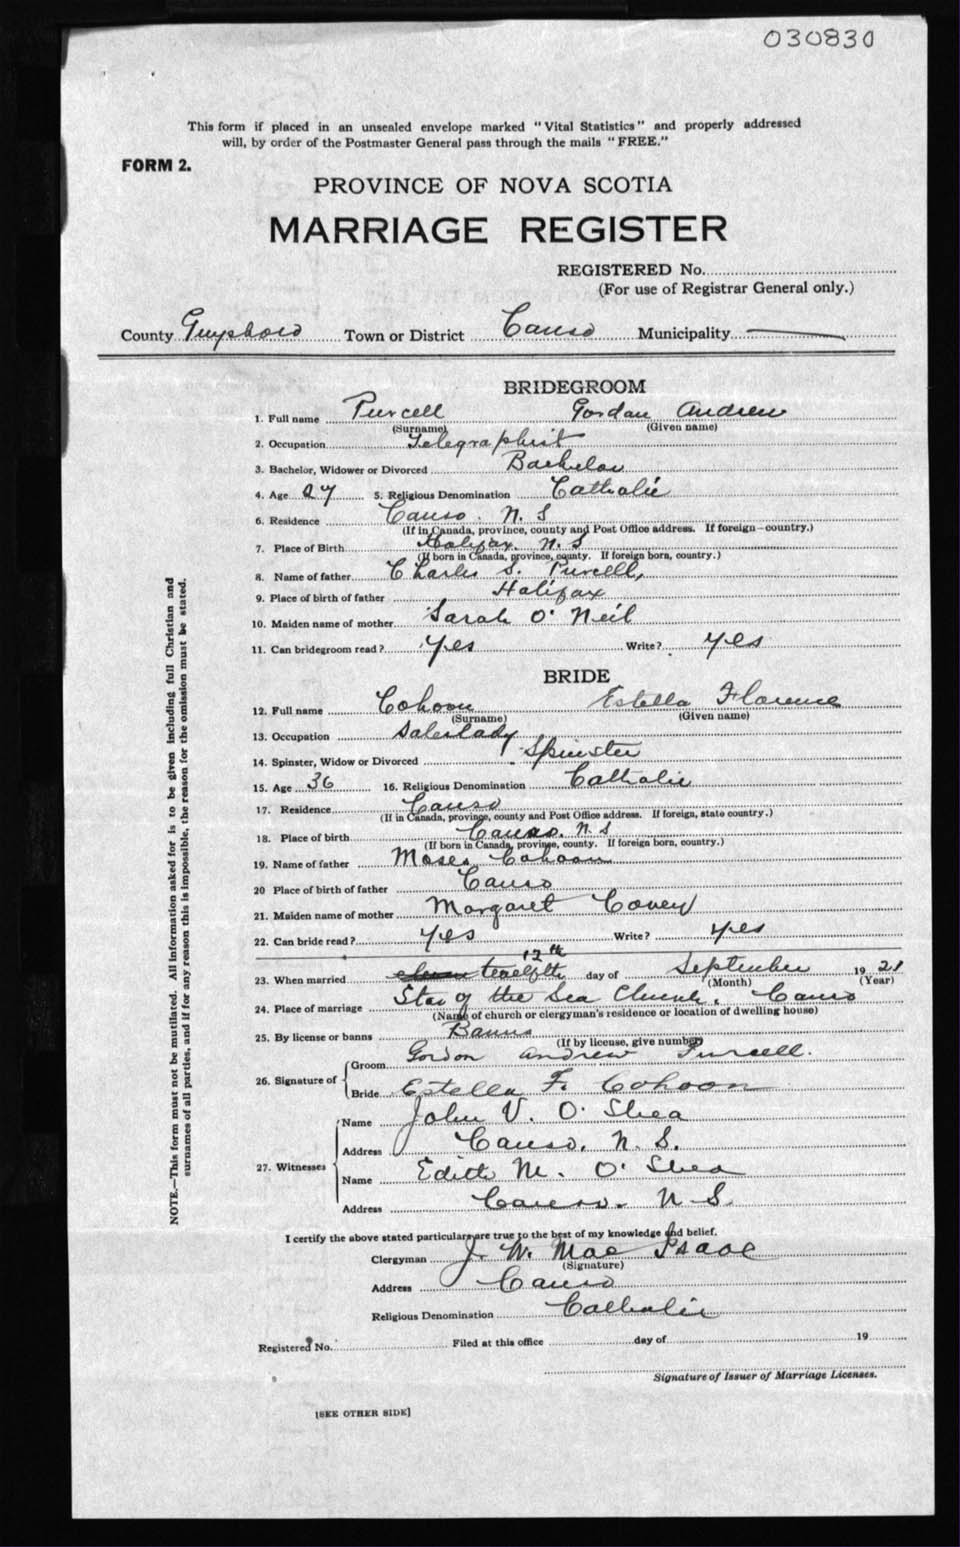 030830
This form if placed in an unsealed envelope marked "Vital Statistics" and properly addressed
will, by order of the Postmaster General pass through the mails "FREE."
FORM 2.
PROVINCE OF NOVA SCOTIA
MARRIAGE REGISTER
REGISTERED No.
(For use of Registrar General only.)
County Guysboro Town or District Canso Municipality
BRIDEGROOM
1. Full name Purcell Gordan Andrew
(Surname) (Given name)
2. Occupation Telegraphist
3. Bachelor, Widower or Divorced Bachelor
4. Age 27 5. Religious Denomination Catholic
6. Residence Canso. N. S
(If in Canada, province, county and Post Office address. If foreign—country.)
7. Place of Birth Halifax N. S
(If born in Canada, province, county. If foreign born, country.)
8. Name of father Charles S. Purcell,
9. Place of birth of father Halifax
10. Maiden name of mother Sarah O' Neil
11. Can bridegroom read? Yes Write? Yes
BRIDE
12. Full name Cohoon Estella Florence
(Surname) (Given name)
13. Occupation Saleslady
14. Spinster, Widow or Divorced Spinster
15. Age 36 16. Religious Denomination Catholic
17. Residence Canso
(If in Canada, province, county and Post Office address. If foreign, state country.)
18. Place of birth Canso. N. S
(If born in Canada, province, county. If foreign born, country.)
19. Name of father Moses Cohoon
20 Place of birth of father Canso
21. Maiden name of mother Margaret Covey
22. Can bride read? Yes Write? Yes
12th
23. When married twelfth day of September 19 21
(Month) (Year)
24. Place of marriage Star of the Sea Church, Canso
(Name of church or clergyman's residence or location of dwelling house)
25. By license or banns Banns
(If by license, give number)
26. Signature of Groom Gordon Andrew Purcell.
Bride Estella F. Cohoon
27. Witnesses Name John V. O'Shea
Address Canso, N. S.
Name Edith M. O'Shea
Address Canso. N S
I certify the above stated particulars are true to the best of my knowledge and belief.
Clergyman J. W. Mac Isaac
(Signature)
Address Canso
Religious Denomination Catholic
Registered No. Filed at this office day of 19
Signature of Issuer of Marriage Licenses.
[SEE OTHER SIDE]
NOTE.—This form must not be mutilated. All information asked for is to be given including full Christian and
surnames of all parties, and if for any reason this is impossible, the reason for the omission must be stated.